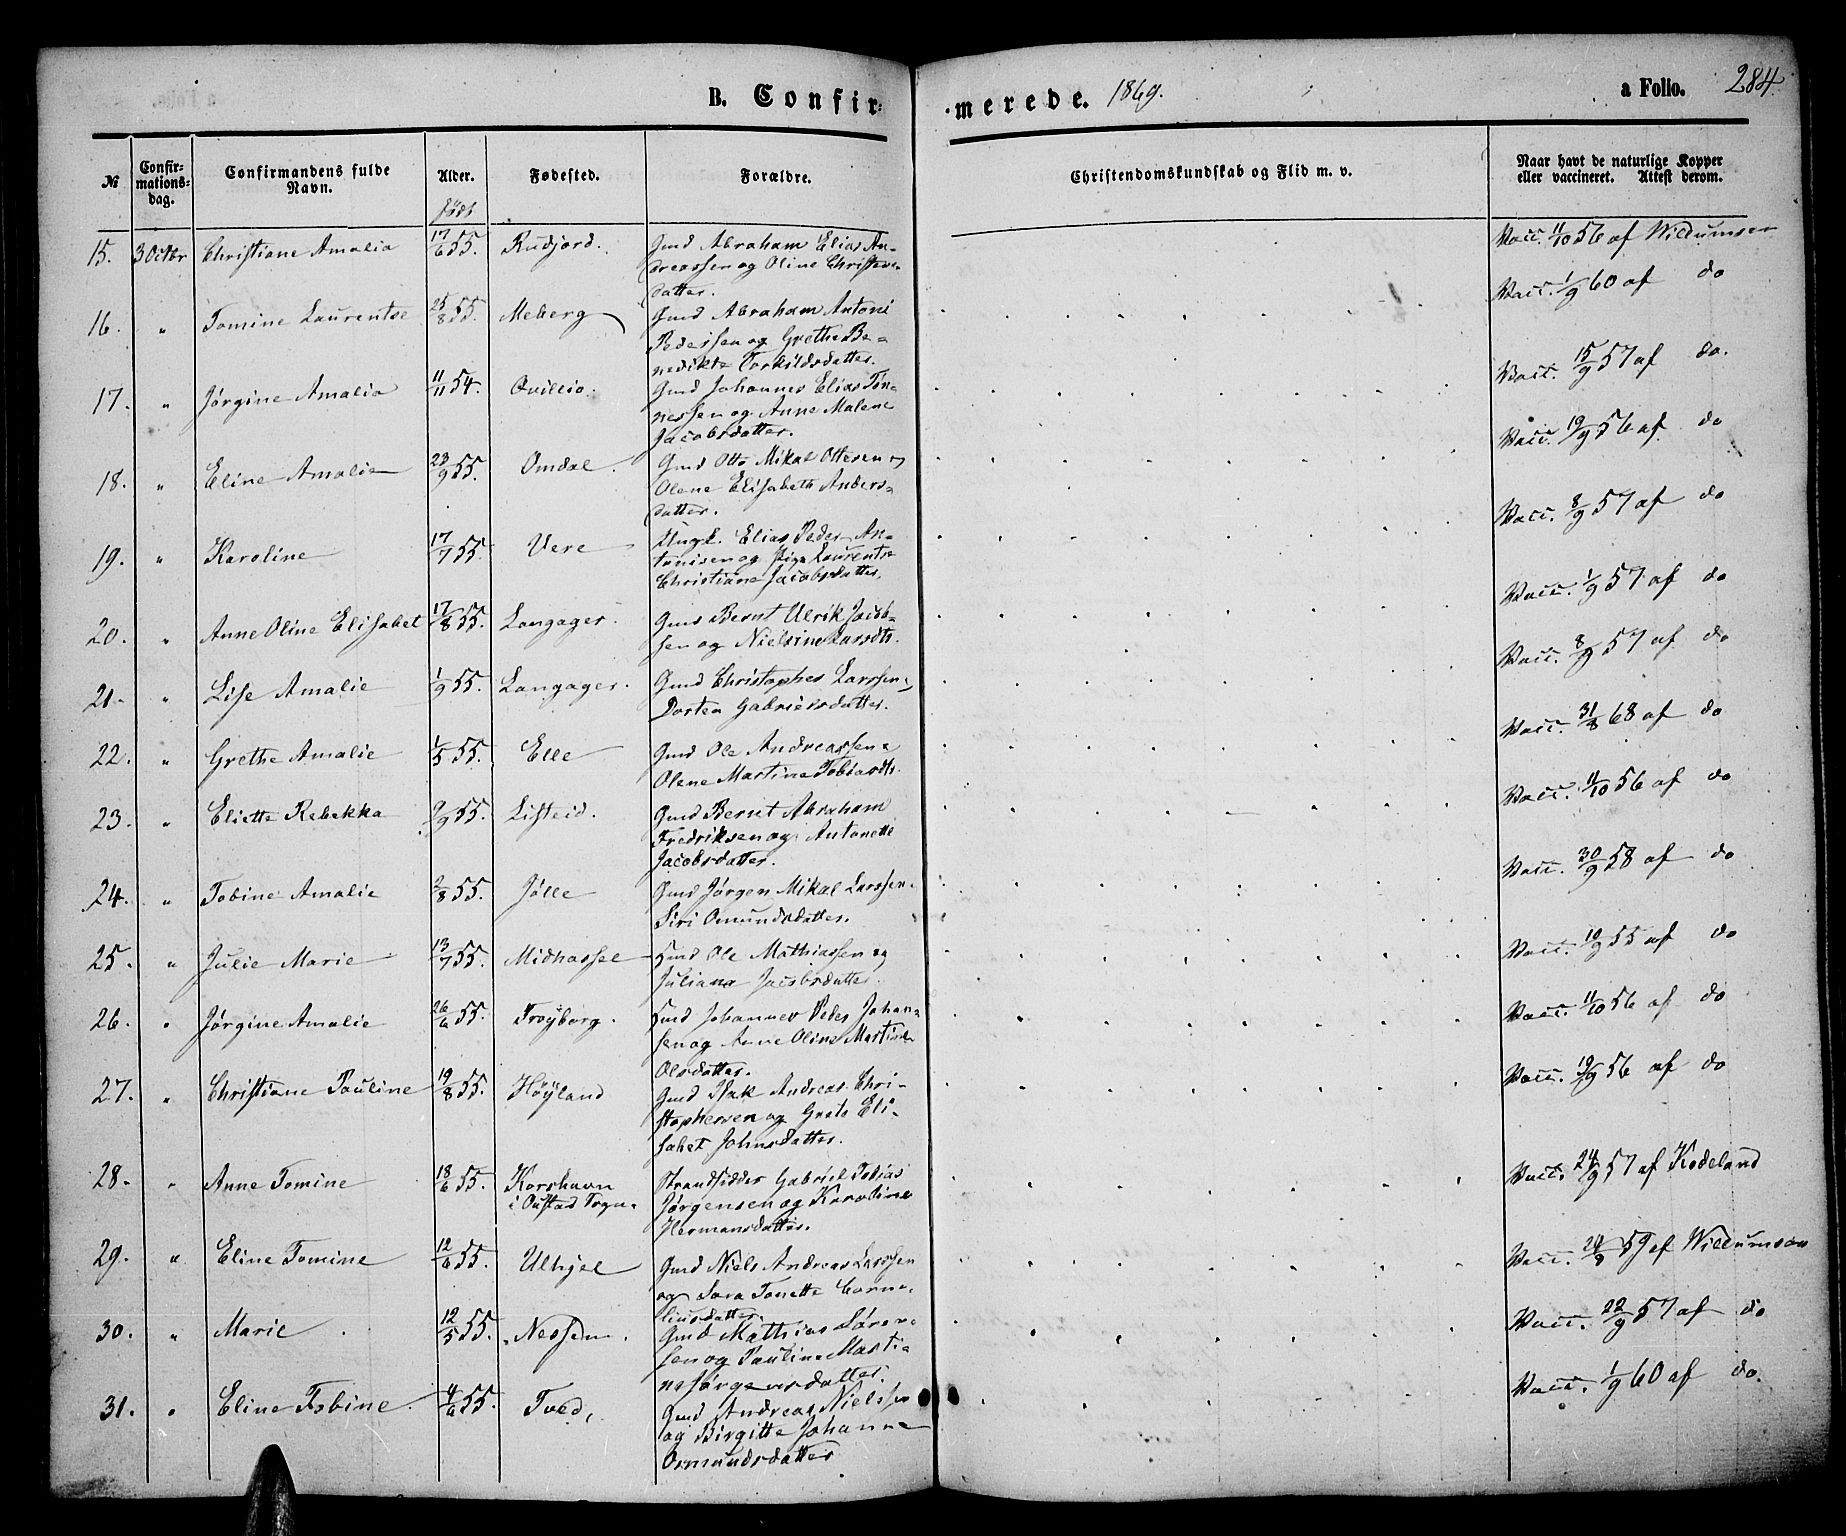 B. Confir-
-merede. 1869.
a Folio. 284.
№
Confir-
mations-
dag.
Confirmandens fulde
Navn.
Alder.
født
Fødested.
Forældre.
Christendomskundskab og Flid m. v.
Naar havt de naturlige Kopper
eller vaccineret. Attest derom.
15. 3 Octbr Christiane Amalia 17/6 55. Rudjord. Gmd Abraham Elias An-
dreassen og Oline Christens-
datter.
Vacc. 11/10 56 af Wildumsen
16. " Tomine Laurentse 25/8 55. Meberg Gmd Abraham Antoni
Pedersen og Grethe Be-
nedikte Torkildsdatter.
Vacc. 1/9 60 af do
17. " Jørgine Amalia 11/11 54. Qvillio. Gmd Johannes Elias Tøn-
nessen og Anne Malene
Jacobsdatter.
Vacc. 15/9 57 af do.
18. " Eline Amalie 23/9 55. Omdal. Gmd Otto Mikal Ottesen og
Olene Elisabeth Anders-
datter.
Vacc. 19/9 56 af do
19. " Karoline 17/7 55. Vere Ungk. Elias Peder An-
tonisen og Pige Laurentse
Christiane Jacobsdatter.
Vacc. 8/9 57 af do
20. " Anne Oline Elisabet 17/8 55. Langager. Gmd Bernt Ulrik Jacob-
sen og Nielsine Larsdtr.
Vacc. 1/9 57. af do
21. " Lise Amalie 1/9 55. Langager. Gmd Christopher Larssen og
Dortea Gabrielsdatter.
Vacc. 8/9 57 af do
22. " Grethe Amalie 1/5 55. Elle Gmd Ole Andreassen og
Olene Martine Tobiasdtr.
Vacc. 31/8 68 af do
23. " Eliette Rebekka 9/9 55. Listeid. Gmd Bernt Abraham
Fredriksen og Antonette
Jacobsdatter.
Vacc. 11/10 56 af do
24. " Tobine Amalie 2/8 55. Jølle Gmd Jørgen Mikal Larssen.
Siri Omundsdatter.
Vacc. 30/9 58 af do
25. " Julie Marie 13/7 55. Midhassel Gmd Ole Mathiassen og
Juliana Jacobsdatter.
Vacc. 10/9 55 af do
26. " Jørgine Amalie 26/6 55. Trøyborg. Gmd Johannes Peder Johan-
sen og Anne Oline Martine
Olsdatter.
Vacc. 11/10 56 af do
27. " Christiane Pauline 19/8 55. Høyland Gmd Isak Andreas Chri-
stophersen og Grete Eli-
sabet Johnsdatter.
Vacc. 19/9 56 af do
28. " Anne Tomine 18/6 55. Korshavn
i Oustad Sogn. Strandsidder Gabriel Tobias
Jørgensen og Karoline
Hermansdatter.
Vacc. 24/9 57 af Kodeland
29. " Eline Tomine 12/6 55. Ulhjel Gmd Niels Andreas Larssen
og Sara Tonette Corne-
liusdatter.
Vacc. 24/9 59 af Wildumsen
30. " Marie 12/5 55. Nessem. Gmd Mathias Søren-
sen og Pauline Marti-
ne Jørgensdatter.
Vacc. 22/9 57 af do
31. " Eline Tobine. 4/6 55. Tved, Gmd Andreas Nielssen
og Birgitte Johanne
Osmundsdatter
Vacc. 1/9 60 af do.